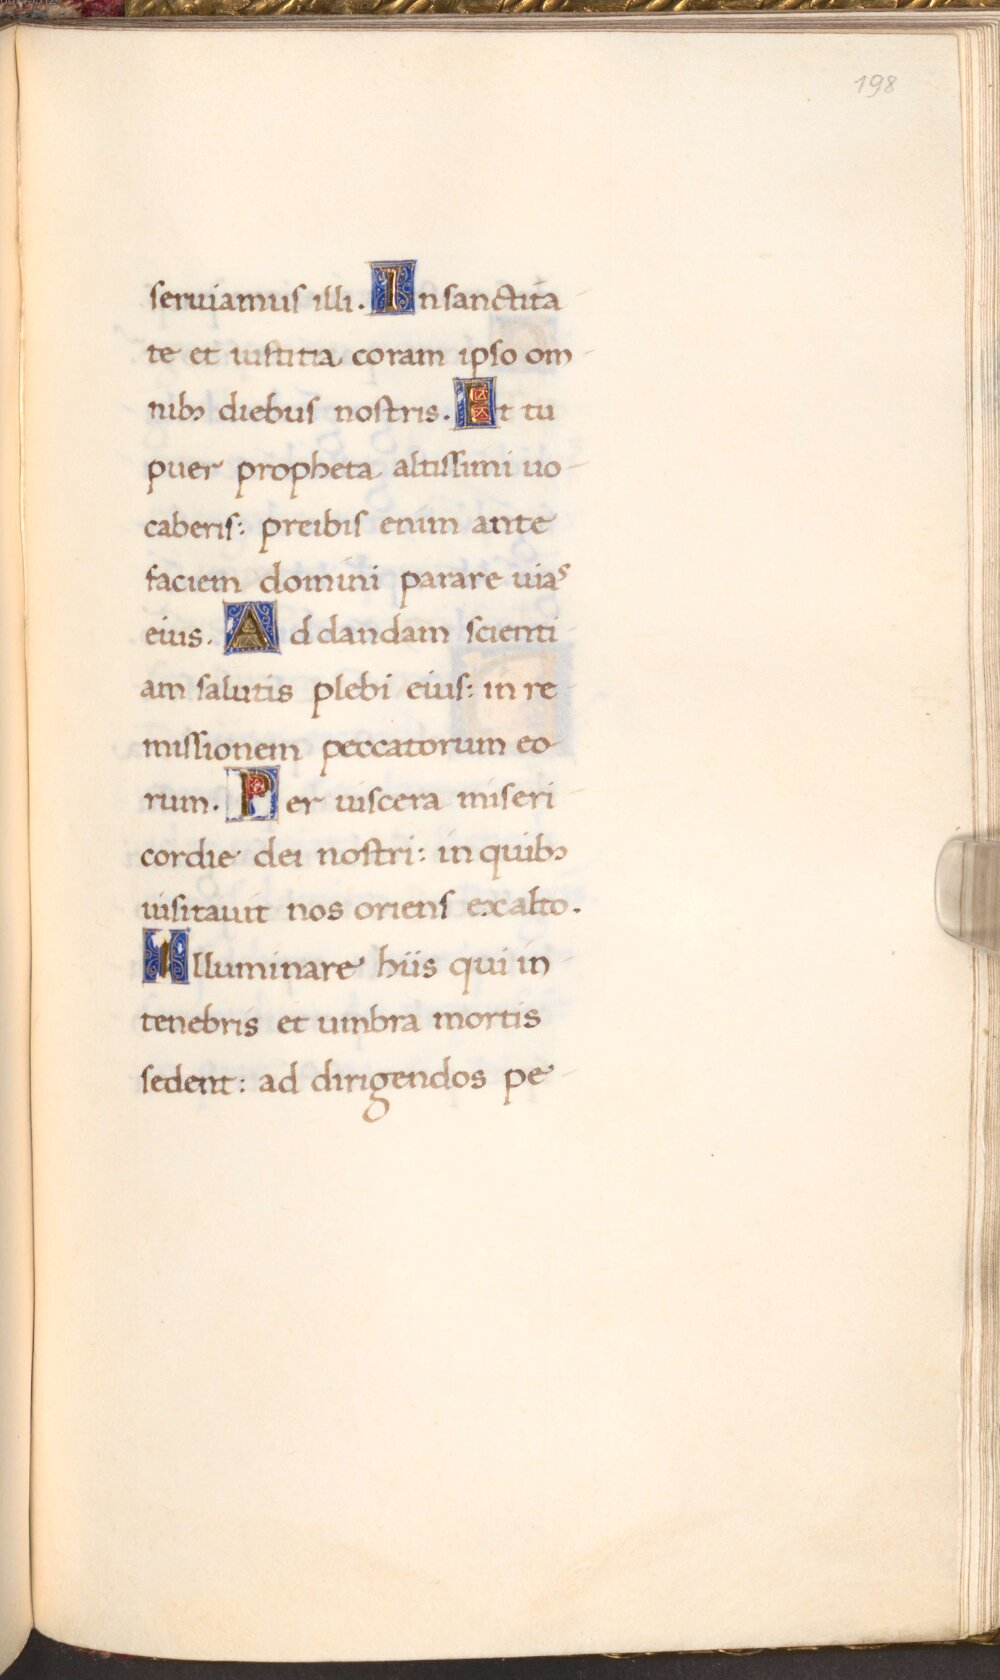 198
seruiamus illi. In sanctita
te et iustitia coram ipso om
nibꝫ diebus nostris. Et tu
puer propheta altissimi uo
caberis: preibis enim ante
faciem domini parare uias
eius. Ad dandam scienti
am salutis plebi eius: in re
missionem peccatorum eo
rum. Per uiscera miseri
cordie dei nostri: in quibꝫ
uisitauit nos oriens exalto.
Illuminare hiis qui in
tenebris et umbra mortis
sedent: ad dirigendos pe